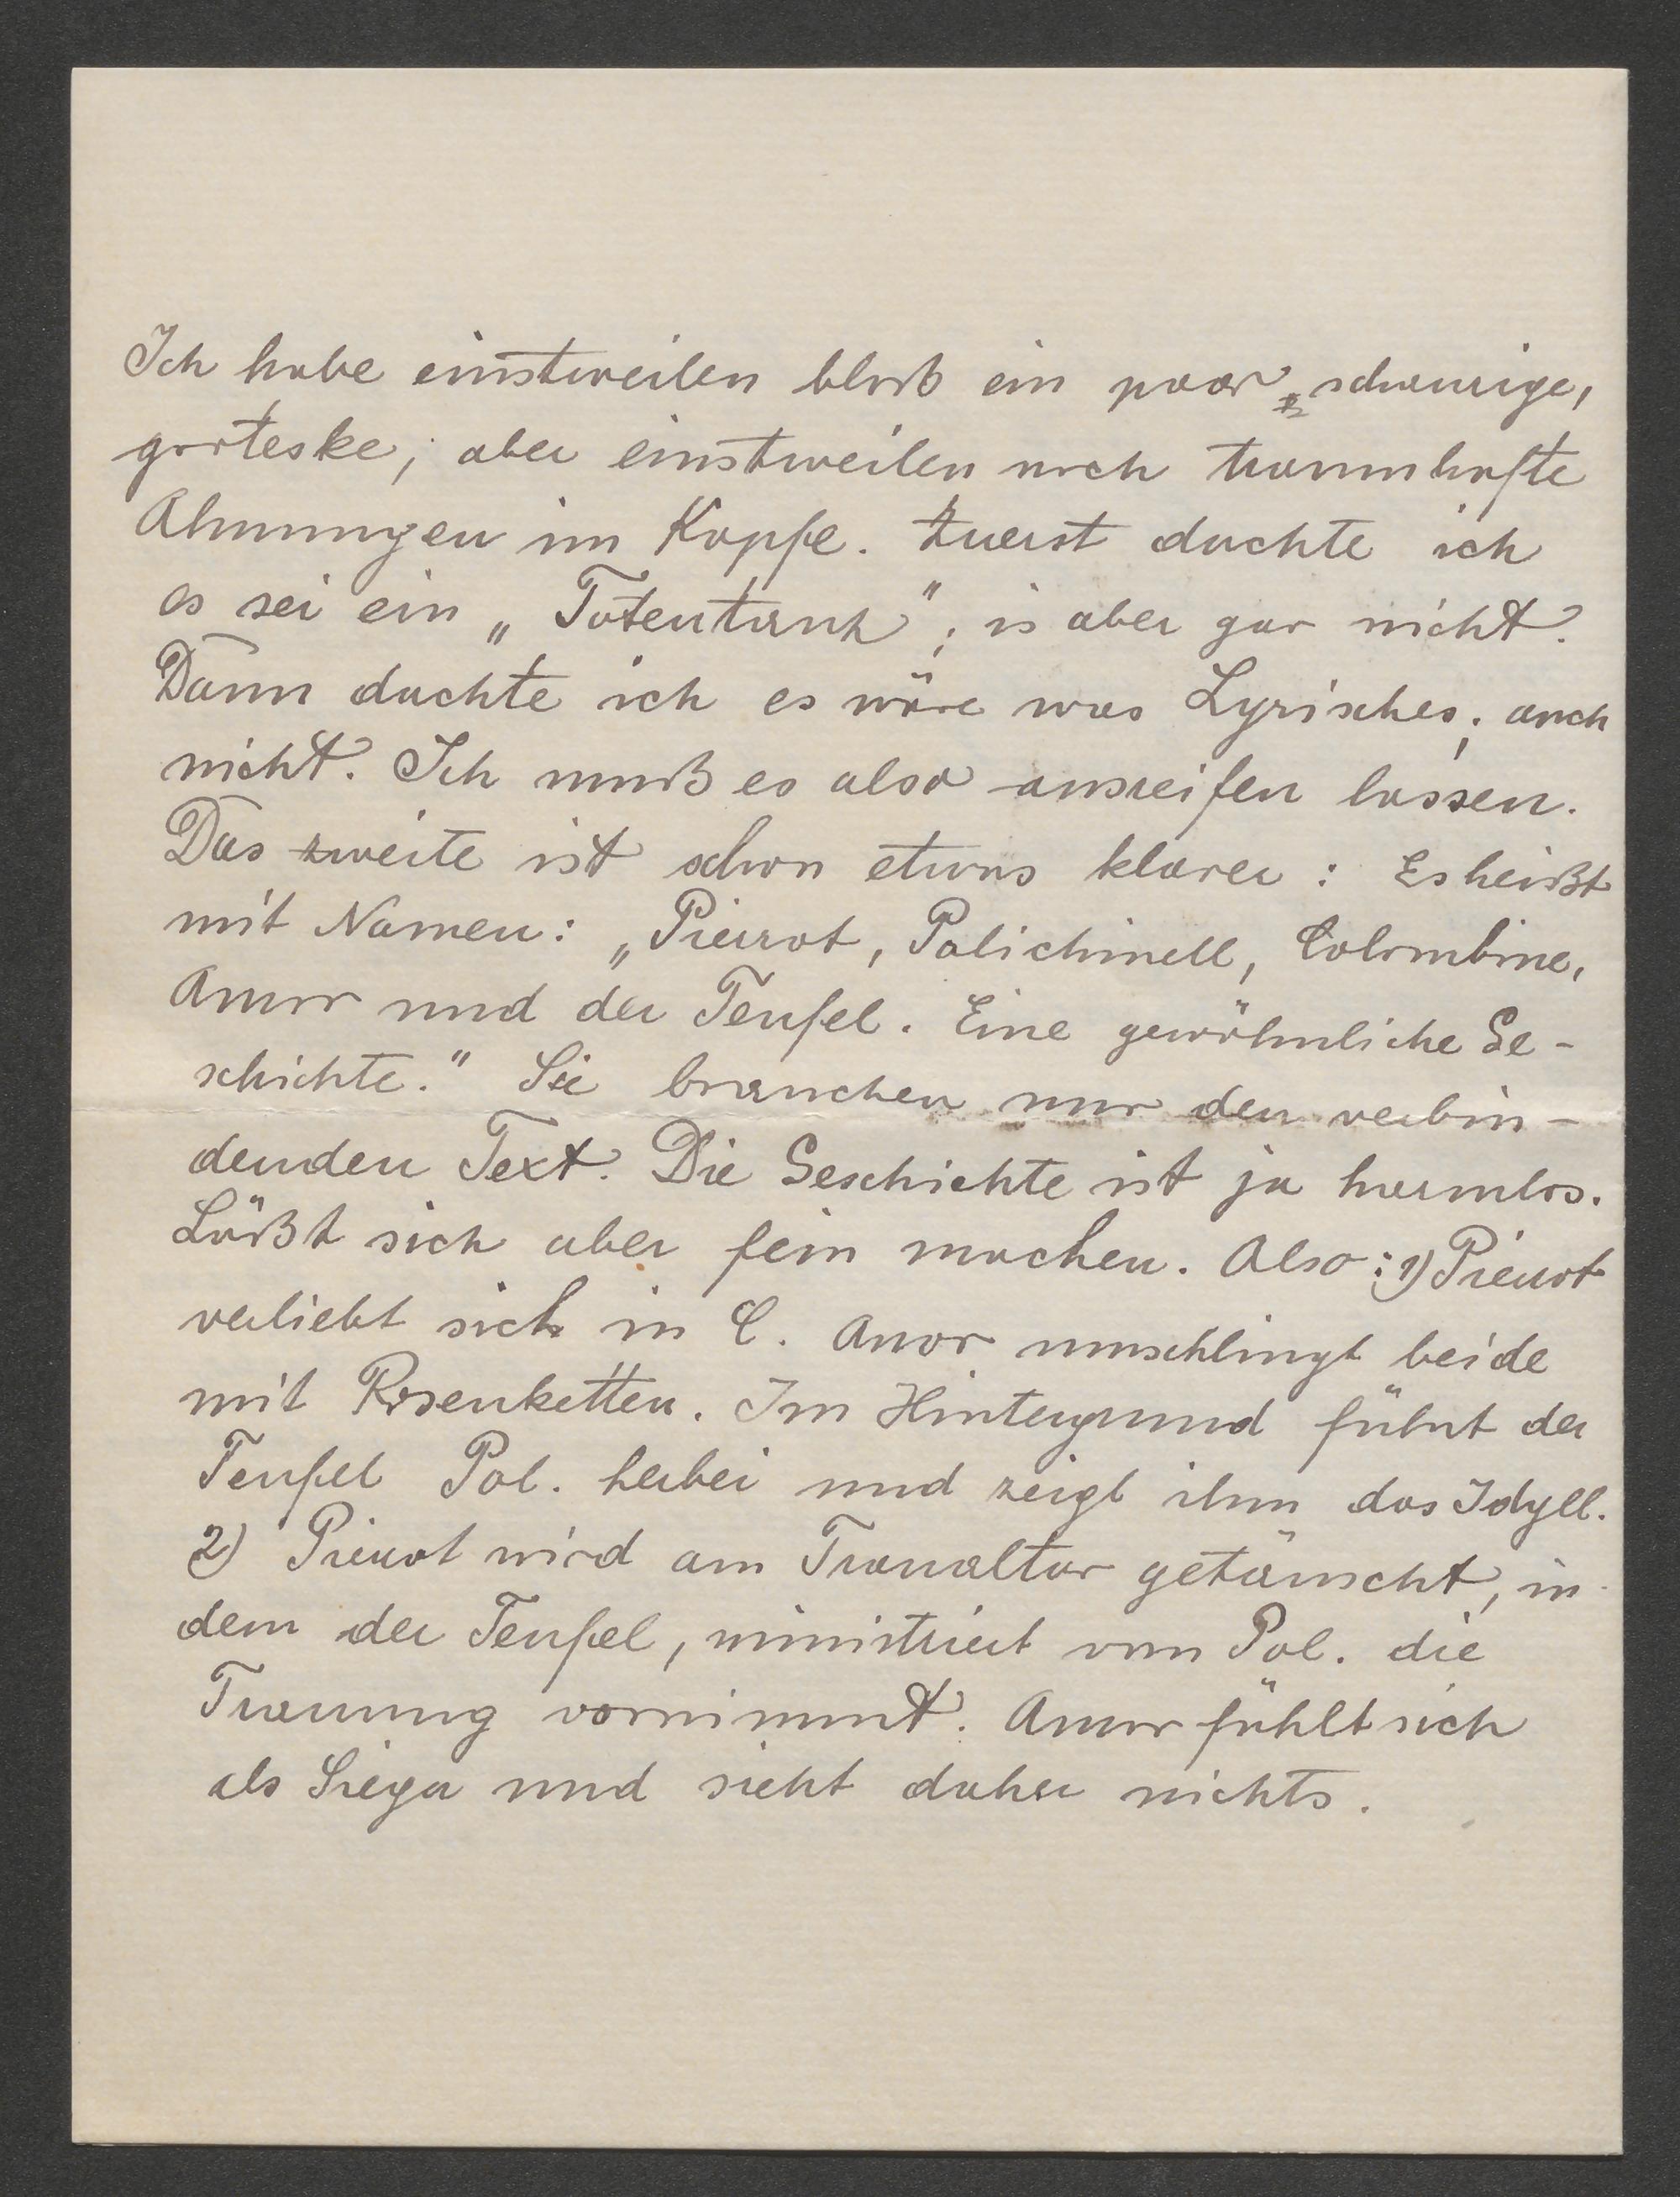 Ich habe einstweilen bloß ein paar schaurige,
groteske, aber einstweilen noch traumhafte
Ahnungen im Kopfe. Zuerst dachte ich
es sei ein „Totentanz"; is aber gar nicht.
Dann dachte ich es wäre was Lyrisches; auch
nicht. Ich muß es also ausreifen lassen.
Das zweite ist schon etwas klarer: Es heißt
mit Namen: „Pierrot, Polichinell, Colombine,
Amor und der Teufel. Eine gewöhnliche Ge-
schichte." Sie brauchen nur den verbin-
denden Text. Die Geschichte ist ja harmlos.
Läßt sich aber fein machen. Also: 1) Pierrot
verliebt sich in C. Amor umschlingt beide
mit Rosenketten. Im Hintergrund führt der
Teufel Pol. herbei und zeigt ihm das Idyll.
2) Pierrot wird am Traualtar getäuscht, in-
dem der Teufel, ministriert vom Pol. die
Trauung vornimmt. Amor fühlt sich
als Sieger und sieht daher nichts.